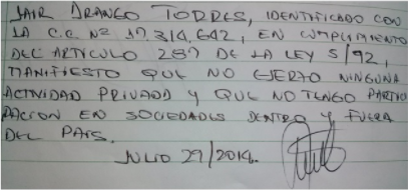 JAIR ARANGO TORRES, IDENTIFICADO CON
LA C.C Nº 17314,642, EN CUMPLIMIENTO
DEL ARTICULO 287 DE LA LEY 5/92,
MANIFIESTO QUE NO EJERZO NINGUNA
ACTIVIDAD PRIVADA Y QUE NO TENGO PARTICI
PACION EN SOCIEDADES DENTRO Y FUERA
DEL PAIS.
JULIO 29/2014.